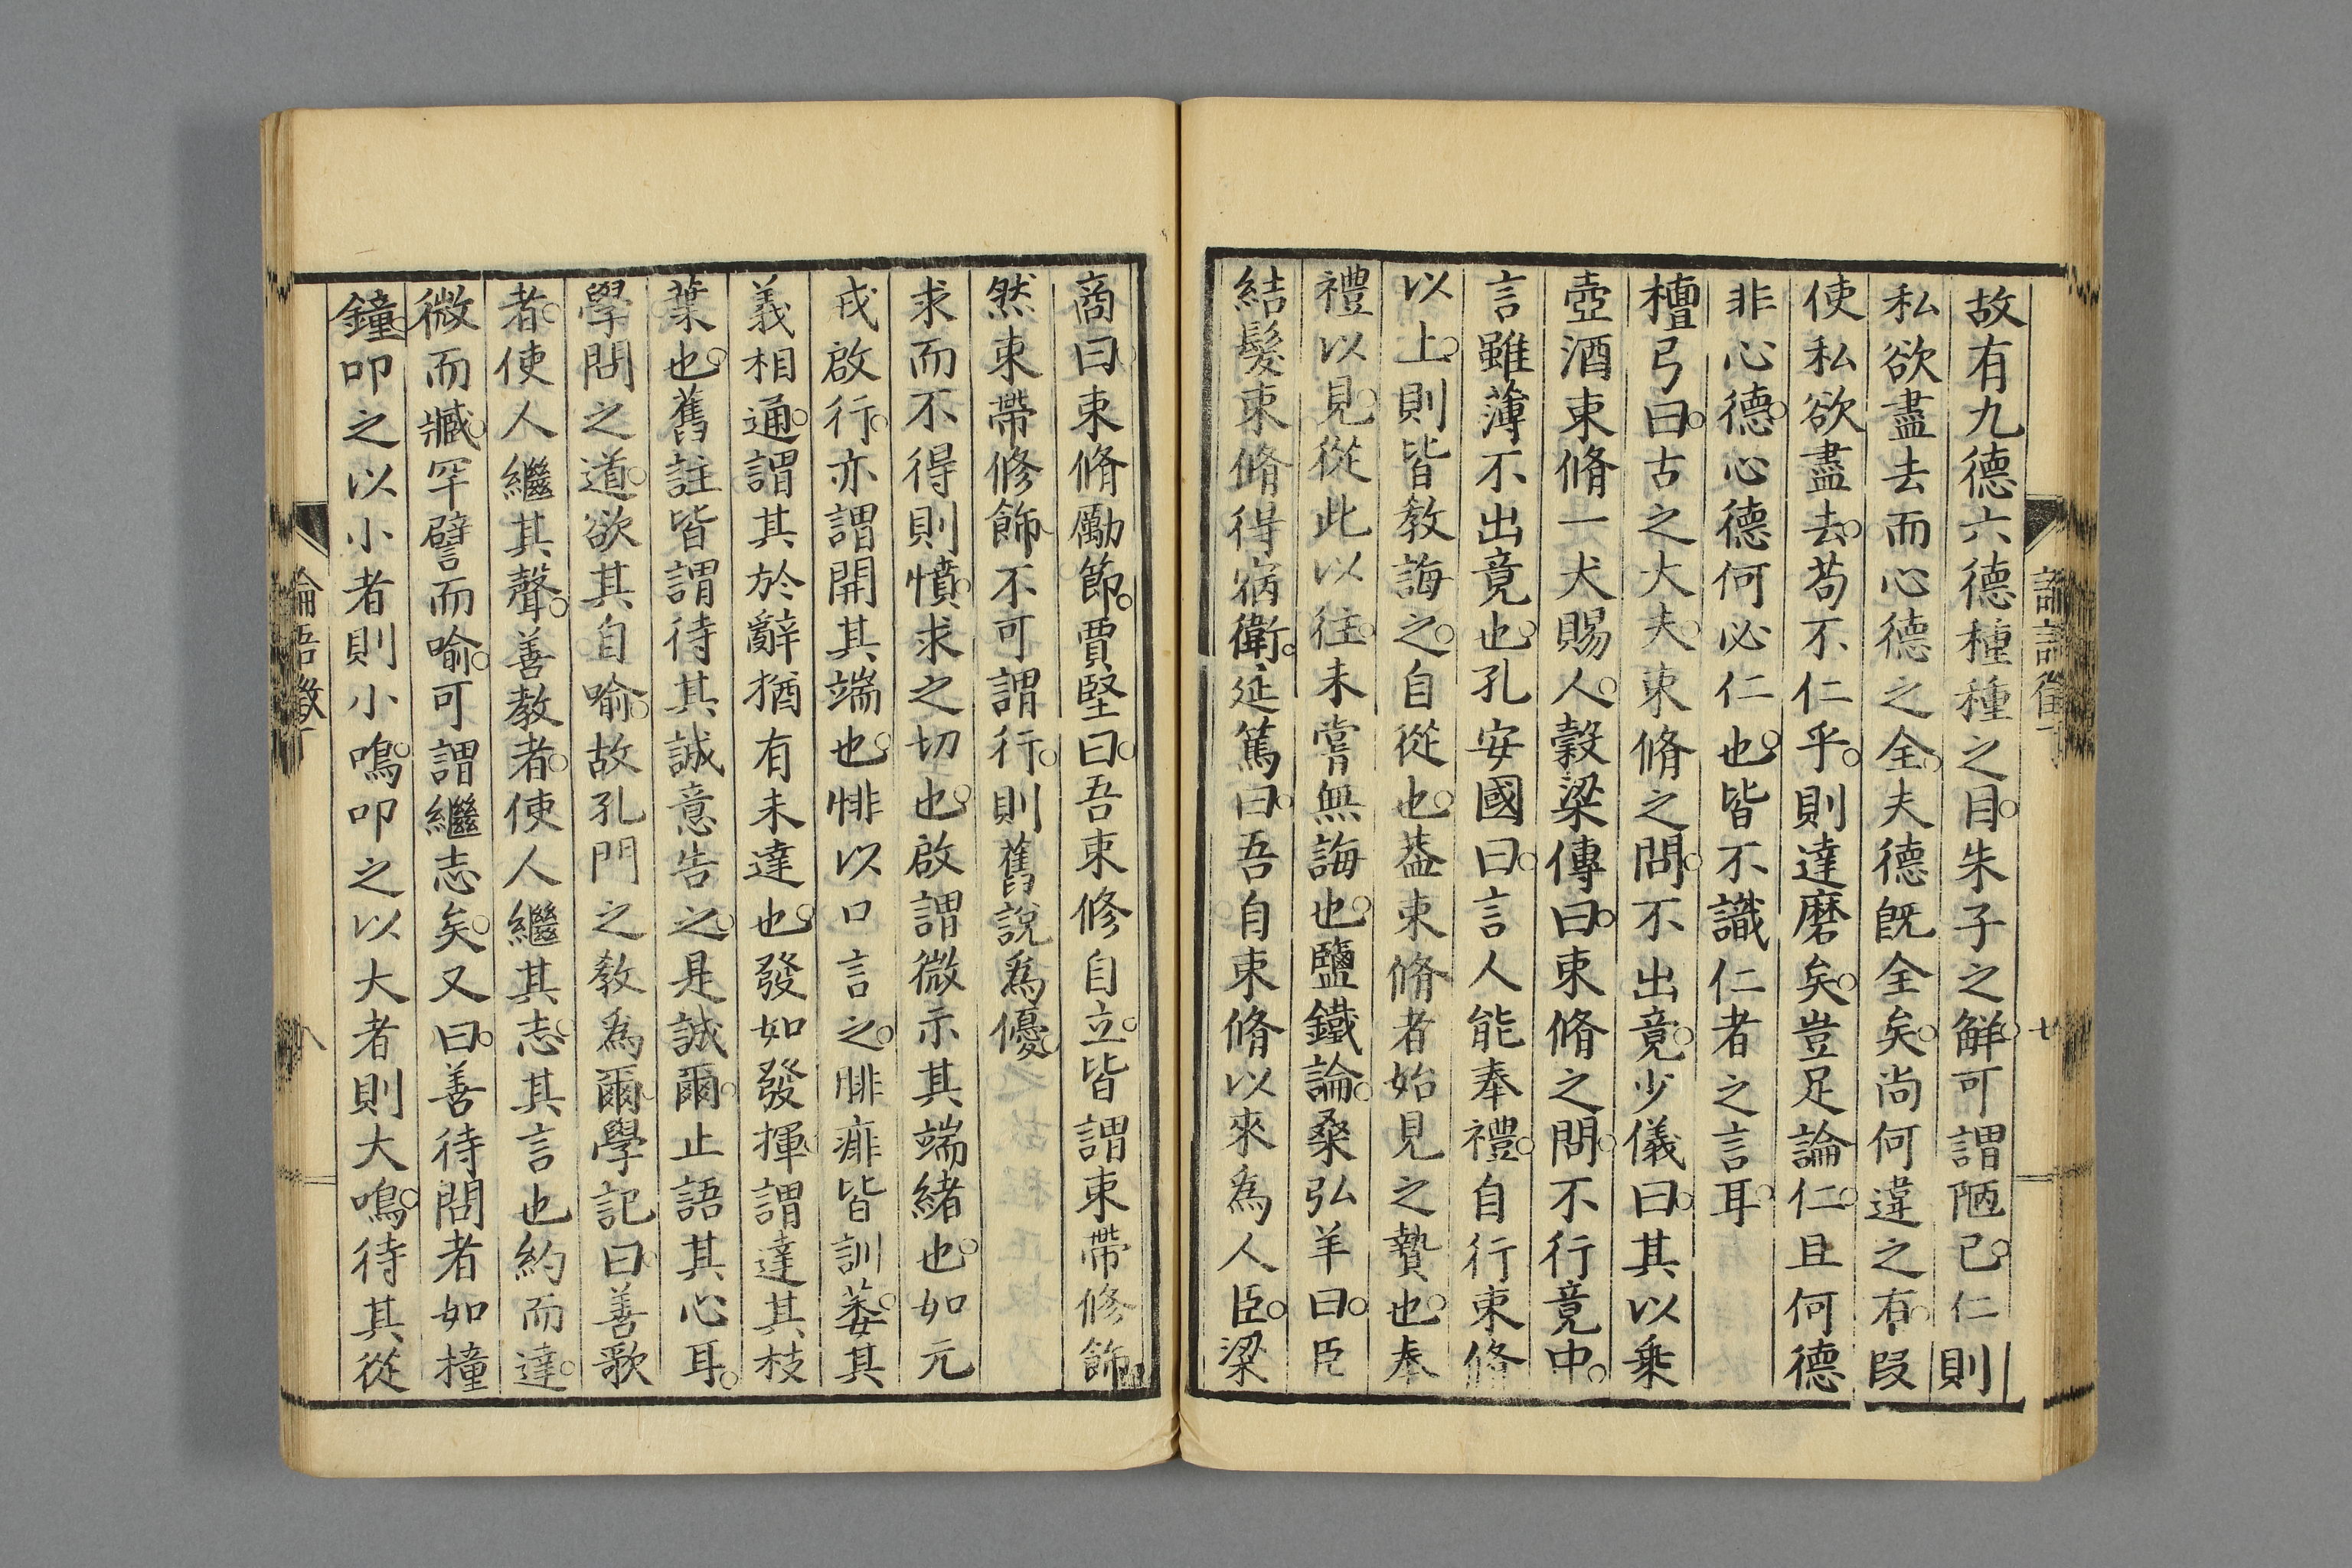 故有九德六德種種之目。朱子之鮮。可謂陋已。仁則
私欲盡去而心德之全。夫德既全矣。尚何違之有。叚
使私欲盡去。苟不仁乎。則達磨矣。豈足論仁。且何德
非心德。心德何必仁也。皆不識仁者之言耳。
檀弓曰。古之大夫。束脩之問。不出竟。少儀曰。其以乘
壺酒束脩一犬賜人。穀梁傳曰。束脩之問。不行竟中。
言雖薄不出竟也。孔安國曰。言人能奉禮。自行束脩
以上。則皆教誨之。自從也。葢束脩者始見之贄也。奉
禮以見。從此以往。未嘗無誨也。鹽鐵論。桑弘羊曰。臣
結髮束脩得宿衛。延篤曰。吾自束脩以來為人臣。梁
商曰。束脩勵節。賈堅曰。吾束修自立。皆謂束帶修飾
然束帶修飾。不可謂行。則舊說為優。
求而不得則憤。求之切也。啟謂微示其端緒也。如元
戎啟行。亦謂開其端也。悱以口言之。腓痱皆訓萎。其
義相通。謂其於辭猶有未達也。發如發揮。謂達其枝
葉也。舊註皆謂待其誠意告之。是誠爾。止語其心耳。
學問之道。欲其自喻。故孔門之教為爾。學記曰。善歌
者。使人繼其聲。善教者。使人繼其志。其言也約而達。
微而臧。罕譬而喻。可謂繼志矣。又曰。善待問者如撞
鐘。叩之以小者則小鳴。叩之以大者則大鳴。待其從
論語徵丁
八